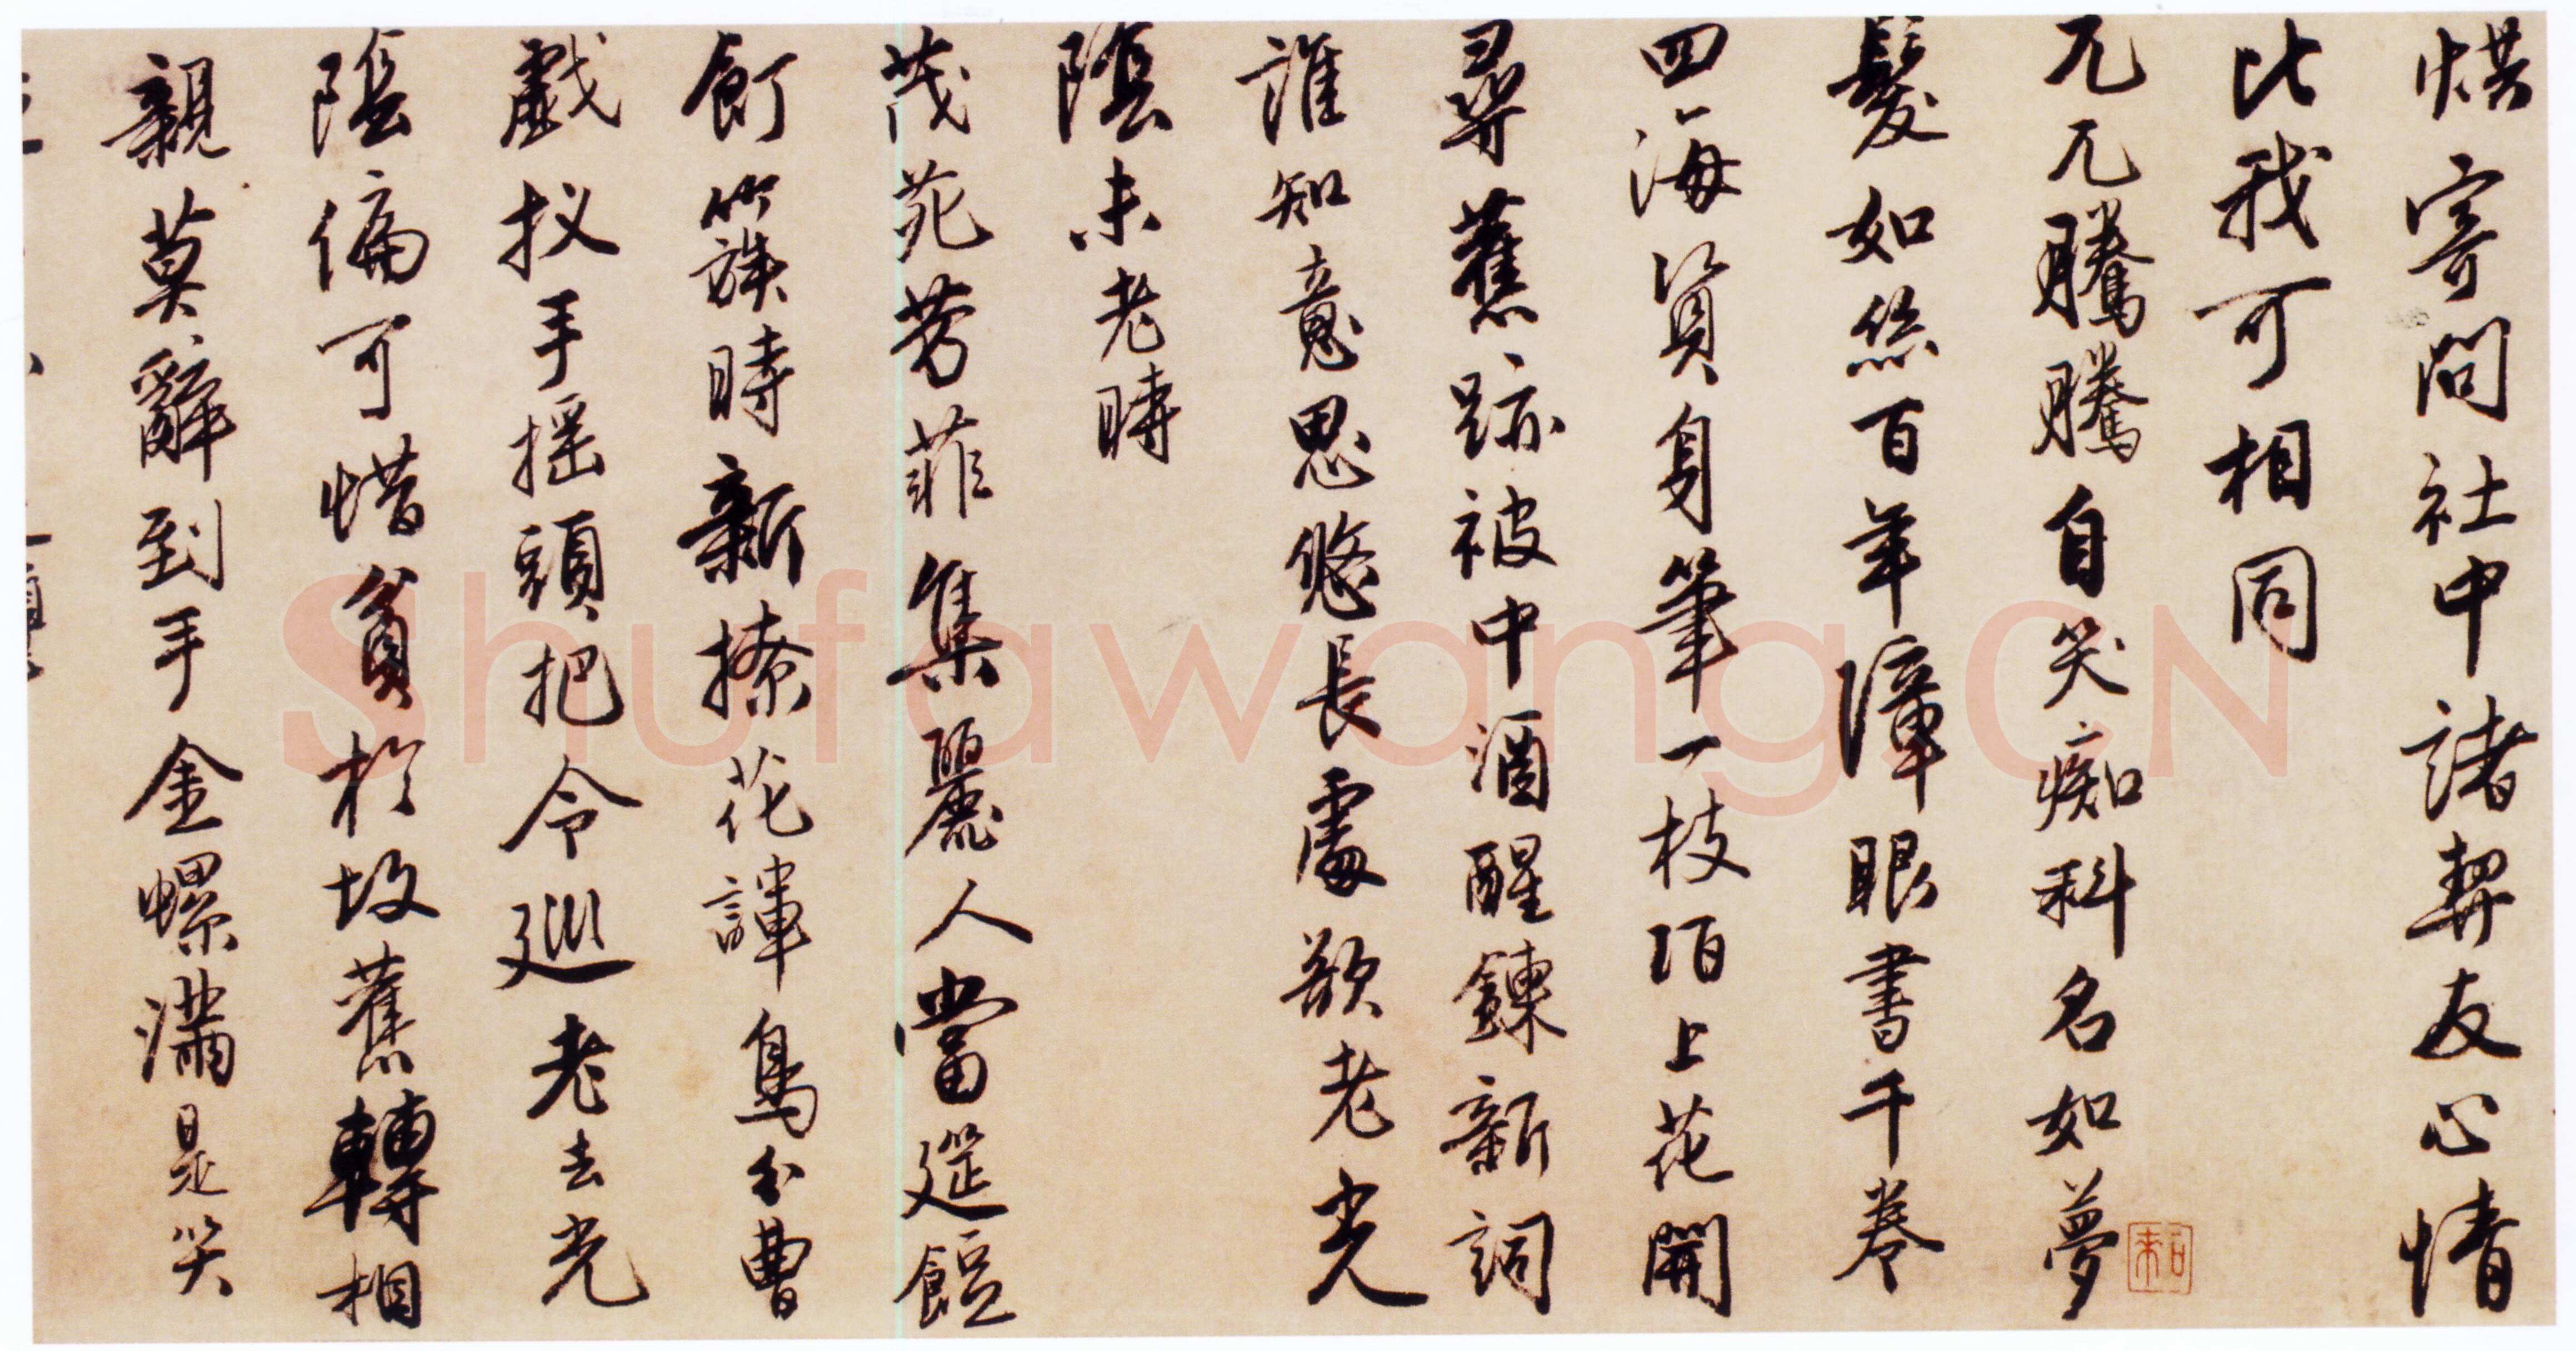 烘寄問社中諸契友心情
比我可相同
兀兀騰騰自笑痴科名如夢
髮如絲百年障眼書千卷
四海資身筆一枝陌上花開
尋舊跡被中酒醒鍊新詞
誰知意思悠長處欲老光
陰未老時
茂苑芳菲集麗人當筵餖
飣簇時新撩花諢鳥分曹
戲扠手搖頭把令巡老去光
陰偏可惜貧於故舊轉相
親莫辭到手金螺滿是笑
Shufawang.CN